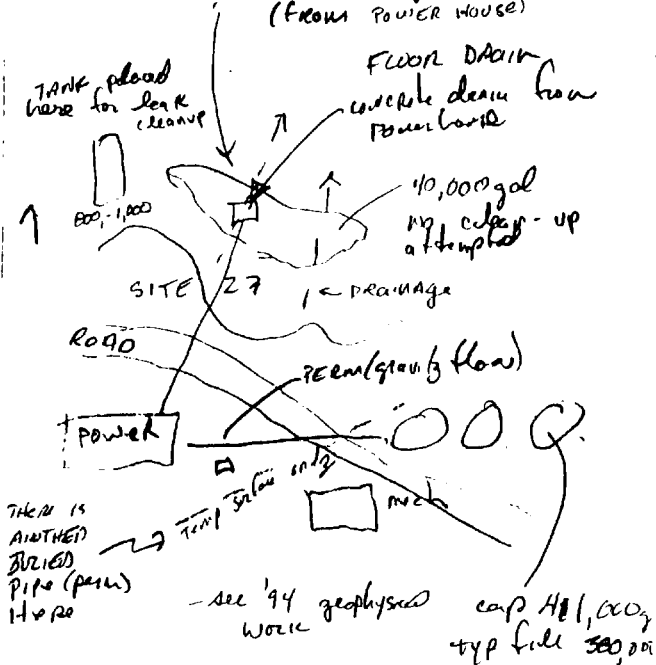 (FROM POWER HOUSE)
FLOOR DRAIN
CONCRETE drain from
powerhouse
TANK placed
here for leak
cleanup
800,-1,000
40,000 gal
no clean-up
attempted
SITE 27
← DRAINAGE
ROAD
PERM (gravity flow)
POWER
Temp surface only
mech
THERE IS
ANOTHER
BURIED
Pipe (perm)
Here
- see '94 geophysical
work
cap
typ fill 380,000